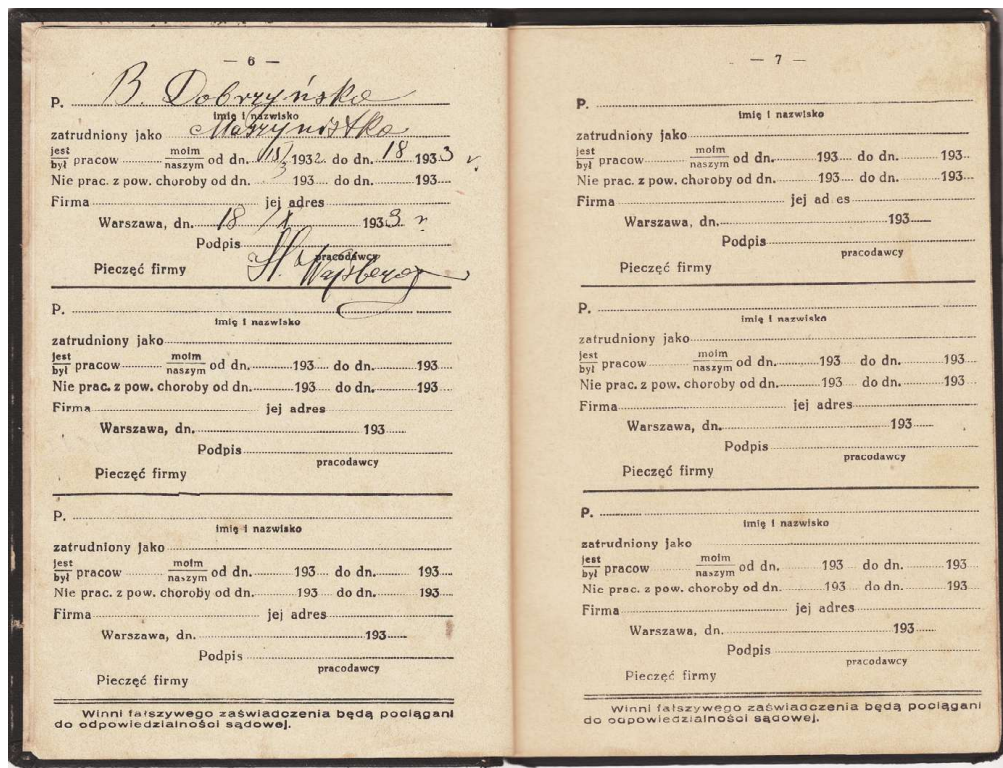 — 6 —
P. B. Dobrzyńska
imię i nazwisko
zatrudniony jako Maszynistka
jest
był pracow moim
naszym od dn. 1932. do dn. 18 1933 r.
Nie prac. z pow. choroby od dn. 193 do dn. 193
Firma jej adres
Warszawa, dn. 18 /X 1933 r
Podpis
pracodawcy
Pieczęć firmy
P.
imię i nazwisko
zatrudniony jako
jest
był pracow moim
naszym od dn. 193 do dn. 193
Nie prac. z pow. choroby od dn. 193 do dn. 193
Firma jej adres
Warszawa, dn. 193
Podpis
pracodawcy
Pieczęć firmy
P.
imię i nazwisko
zatrudniony jako
jest
był pracow moim
naszym od dn. 193 do dn. 193
Nie prac. z pow. choroby od dn. 193 do dn. 193
Firma jej adres
Warszawa, dn. 193
Podpis
pracodawcy
Pieczęć firmy
Winni fałszywego zaświadczenia będą pociągani
do odpowiedzialności sądowej.
— 7 —
P.
imię i nazwisko
zatrudniony jako
jest
był pracow moim
naszym od dn. 193 do dn. 193
Nie prac. z pow. choroby od dn. 193 do dn. 193
Firma jej ad es
Warszawa, dn. 193
Podpis
pracodawcy
Pieczęć firmy
P.
imię i nazwisko
zatrudniony jako
jest
był pracow moim
naszym od dn. 193 do dn. 193
Nie prac. z pow. choroby od dn. 193 do dn. 193
Firma jej adres
Warszawa, dn. 193
Podpis
pracodawcy
Pieczęć firmy
P.
imię i nazwisko
zatrudniony jako
jest
był pracow moim
naszym od dn. 193 do dn. 193
Nie prac. z pow. choroby od dn. 193 do dn. 193
Firma jej adres
Warszawa, dn. 193
Podpis
pracodawcy
Pieczęć firmy
Winni fałszywego zaświadczenia będą pociągani
do odpowiedzialności sądowej.